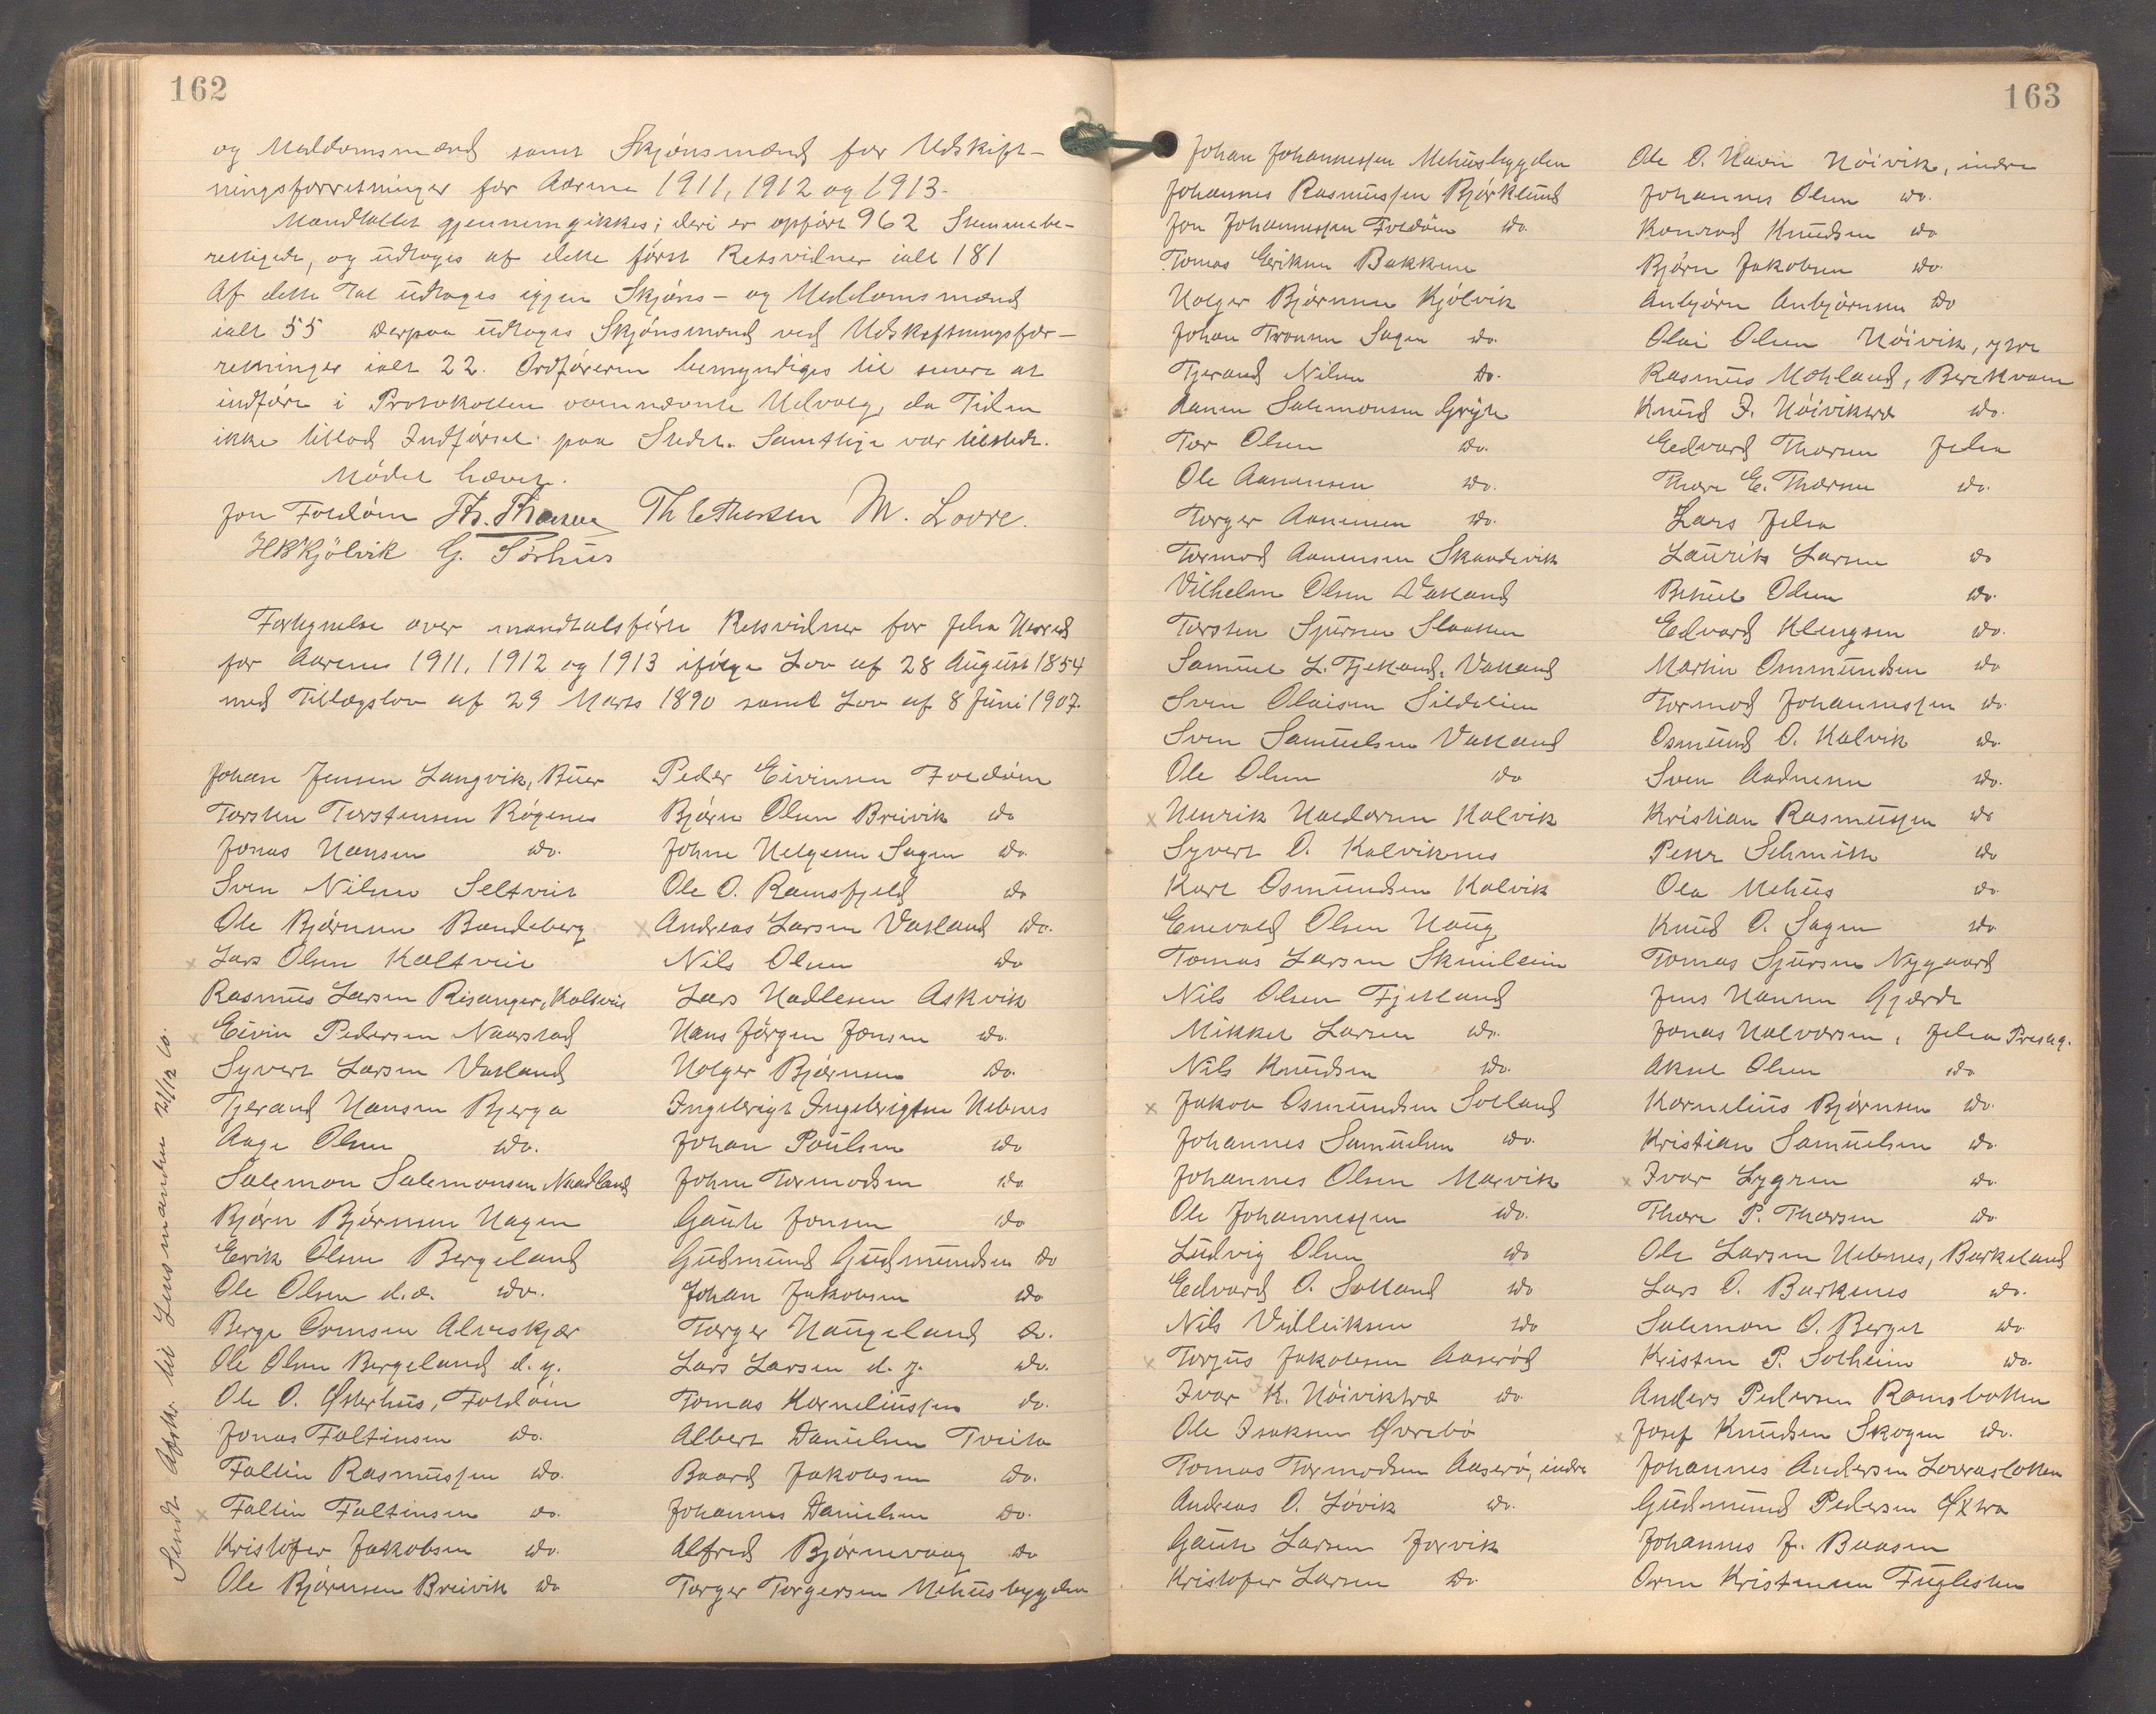 162
og Meddomsmænd samt Skjönsmænd for Udskift-
ningsforretninger for Aarene 1911, 1912 og 1913.
Mandtallet gjennemgikkes; deri er opført 962 Stemmebe-
rettigede, og udtoges af dette først Retsvidner ialt 181
Af dette Tal udtoges igjen Skjöns- og Meddomsmænd
ialt 55 derpaa udtoges Skjönsmænd ved Udskiftningsfor-
retninger ialt 22. Ordföreren bemyndiges til senere at
indföre i Protokollen ovennævnte Udvalg, da Tiden
ikke tillod Indførsel paa Stedet. Samtlige var tilstede.
Mödet hævet.
Jon Foldöin Th. Thorsen Th E Thorsen M. Lovre.
HBKjölvik G. Sörhus
Fortegnelse over mandtalsförte Retsvidner for Jelsa Herred
for Aarene 1911, 1912 og 1913 ifølge Lov af 28 August 1854
med Tillægslov af 29 Marts 1890 samt Lov af 8 Juni 1907.
Johan Jensen Langvik, Buer
Torsten Torstensen Rögenes
Jonas Hansen do.
Sven Nilsen Seltveit
Ole Björnsen Bandeberg
x Lars Olsen Kaltveit
Rasmus Larsen Risanger, Kaltveit
x Eivin Pedersen Naarstad
Syvert Larsen Vadland
Tjerand Hansen Bjerga
Aage Olsen do.
Salemon Salemonsen Naadland
Björn Björnsen Hagen
Erik Olsen Bergeland
Ole Olsen d.æ. do.
Berge Ormsen Alveskjær
Ole Olsen Bergeland d. y.
Ole O. Østerhus, Foldöin
Jonas Faltinsen do.
Faltin Rasmussen do.
x Faltin Faltinsen do.
Kristofer Jakobsen do.
Ole Björnsen Breivik do
Peder Eivinsen Foldöin
Björn Olsen Breivik do
Johne Helgesen Sagen do.
Ole O. Ramsfjeld do
x Andreas Larsen Vadland do.
Nils Olsen do
Lars Hadlesen Askvik
Hans Jörgen Jonsen do.
Holger Björnsen do.
Ingebrigt Ingebrigtsen Hebnes
Johan Poulsen do
Johne Tormodsen do
Gaute Jonsen do
Gudmund Gudmundsen do
Johan Jakobsen do
Torger Haugeland do.
Lars Larsen d. y. do.
Tomas Korneliussen do.
Albert Danielsen Tveita
Baard Jakobsen do.
Johannes Danielsen do.
Alfred Björnevaag do
Torger Torgersen Mehusbygden
Sendt Afskr. til Lensmanden 21/12 10.
163
Johan Johannessen Mehusbygden
Johannes Rasmussen Björklund
Jon Johannessen Foldöin do.
Tomas Eriksen Bakken
Holger Björnsen Kjölvik
Johan Tronsen Sagen do.
Tjerand Nilsen do.
Aanen Salemonsen Gryte
Tor Olsen do.
Ole Aanensen do.
Torger Aanensen do.
Tormod Aanensen Skaadevik
Vilhelm Olsen Vadland
Torsten Sjursen Slaatten
Samuel L. Fjetland, Vadland
Sven Olaisen Sildelien
Sven Samuelsen Vadland
Ole Olsen do
x Henrik Haldorsen Kalvik
Syvert O. Kalviknes
Karl Osmundsen Kalvik
Enevald Olsen Haug
Tomas Larsen Skeulein
Nils Olsen Fjetland
Mikkel Larsen do.
Nils Knudsen do.
x Jakob Osmundsen Sotland
Johannes Samuelsen do.
Johannes Olsen Marvik
Ole Johannessen do.
Ludvig Olsen do
Edvard O. Sotland do
Nils Vidleiksen do
x Torjus Jakobsen Aaseröd
Ivar K. Höiviktræ do.
Ole Isaksen Øvrebö
Tomas Tormodsen Aaserö, indre
Andreas O. Lövik do.
Gaute Larsen Jorvik
Kristofer Larsen do.
Ole O. Havn Höivik, indre
Johannes Olsen do.
Konrad Knudsen do
Björn Jakobsen do.
Anbjörn Anbjörnsen do
Olai Olsen Höivik, ytre
Rasmus Mohland, Berekvam
Knud I. Höiviktræ do.
Edvard Thorsen Jelsa
Thore E. Thorsen do.
Lars Jelsa
Laurits Larsen do
Betuel Olsen do.
Edvard Klengsen do.
Martin Ommundsen do
Tormod Johannessen do.
Osmund O. Kalvik do.
Sven Aadnesen do.
Kristian Rasmussen do
Peter Schmith do
Ola Mehus do.
Knud O. Sagen do
Tomas Sjursen Nygaard
Jens Hansen Gjærde
Jonas Halvorsen, Jelsa Prestg.
Aksel Olsen do
Kornelius Björnsen do.
Kristian Samuelsen do.
x Ivar Lygren do.
Thore P. Thorsen do.
Ole Larsen Hebnes, Barkeland
Lars O. Barkenes do.
Salemon O. Berget do.
Kristen P. Solheim do.
Anders Pedersen Ramsbotten
x Josef Knudsen Skogen do.
Johannes Andersen Lovraslotten
Gudmund Pedersen Øxtra
Johannes J. Baasen
Orm Kristensen Fuglesten